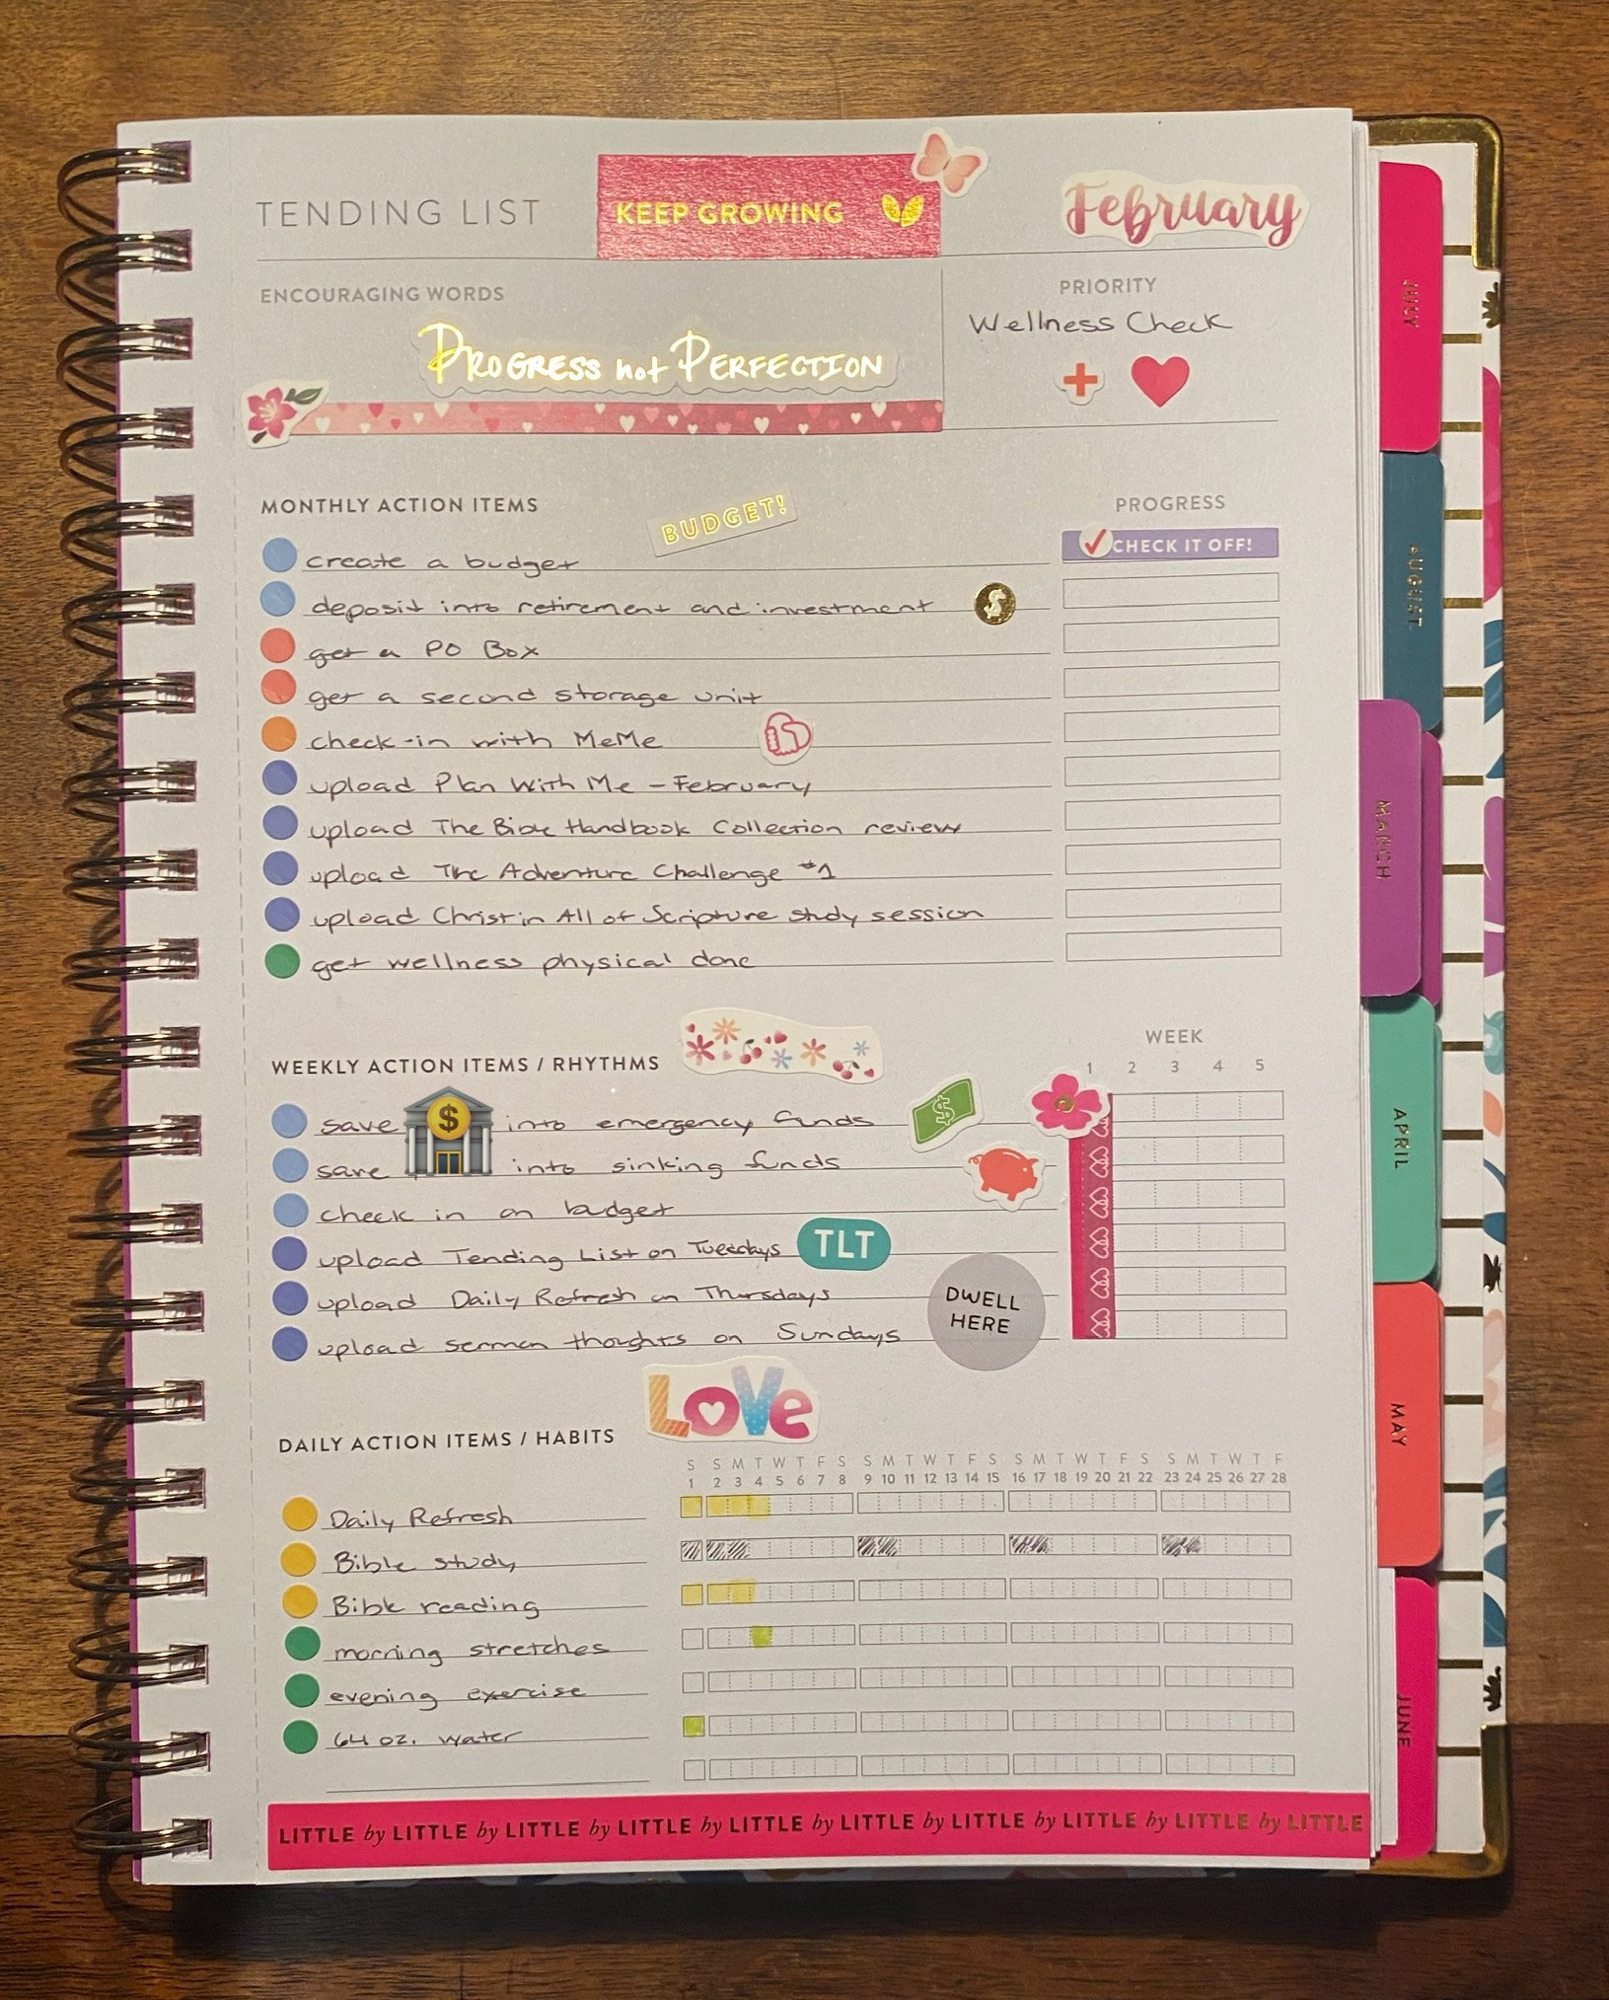 TENDING LIST
KEEP GROWING
February
ENCOURAGING WORDS
PROGRESS not PERFECTION
PRIORITY
Wellness Check
MONTHLY ACTION ITEMS
BUDGET!
PROGRESS
CHECK IT OFF!
create a budget
deposit into retirement and investment $
get a PO Box
get a second storage unit
check-in with MeMe
upload Plan With Me - February
upload The Bible Handbook Collection review
upload The Adventure Challenge #1
upload Christ in All of Scripture study session
get wellness physical done
WEEKLY ACTION ITEMS / RHYTHMS
WEEK
1 2 3 4 5
save $ into emergency funds $
save into sinking funds
check in on budget
upload Tending List on Tuesdays TLT
upload Daily Refresh on Thursdays
upload sermon thoughts on Sundays
DWELL
HERE
LOVE
DAILY ACTION ITEMS / HABITS
S S M T W T F S S M T W T F S S M T W T F S S M T W T F
1 2 3 4 5 6 7 8 9 10 11 12 13 14 15 16 17 18 19 20 21 22 23 24 25 26 27 28
Daily Refresh
Bible study
Bible reading
morning stretches
evening exercise
64 oz. water
LITTLE by LITTLE by LITTLE by LITTLE by LITTLE by LITTLE by LITTLE by LITTLE by LITTLE by LITTLE
JULY
AUGUST
MARCH
APRIL
MAY
JUNE